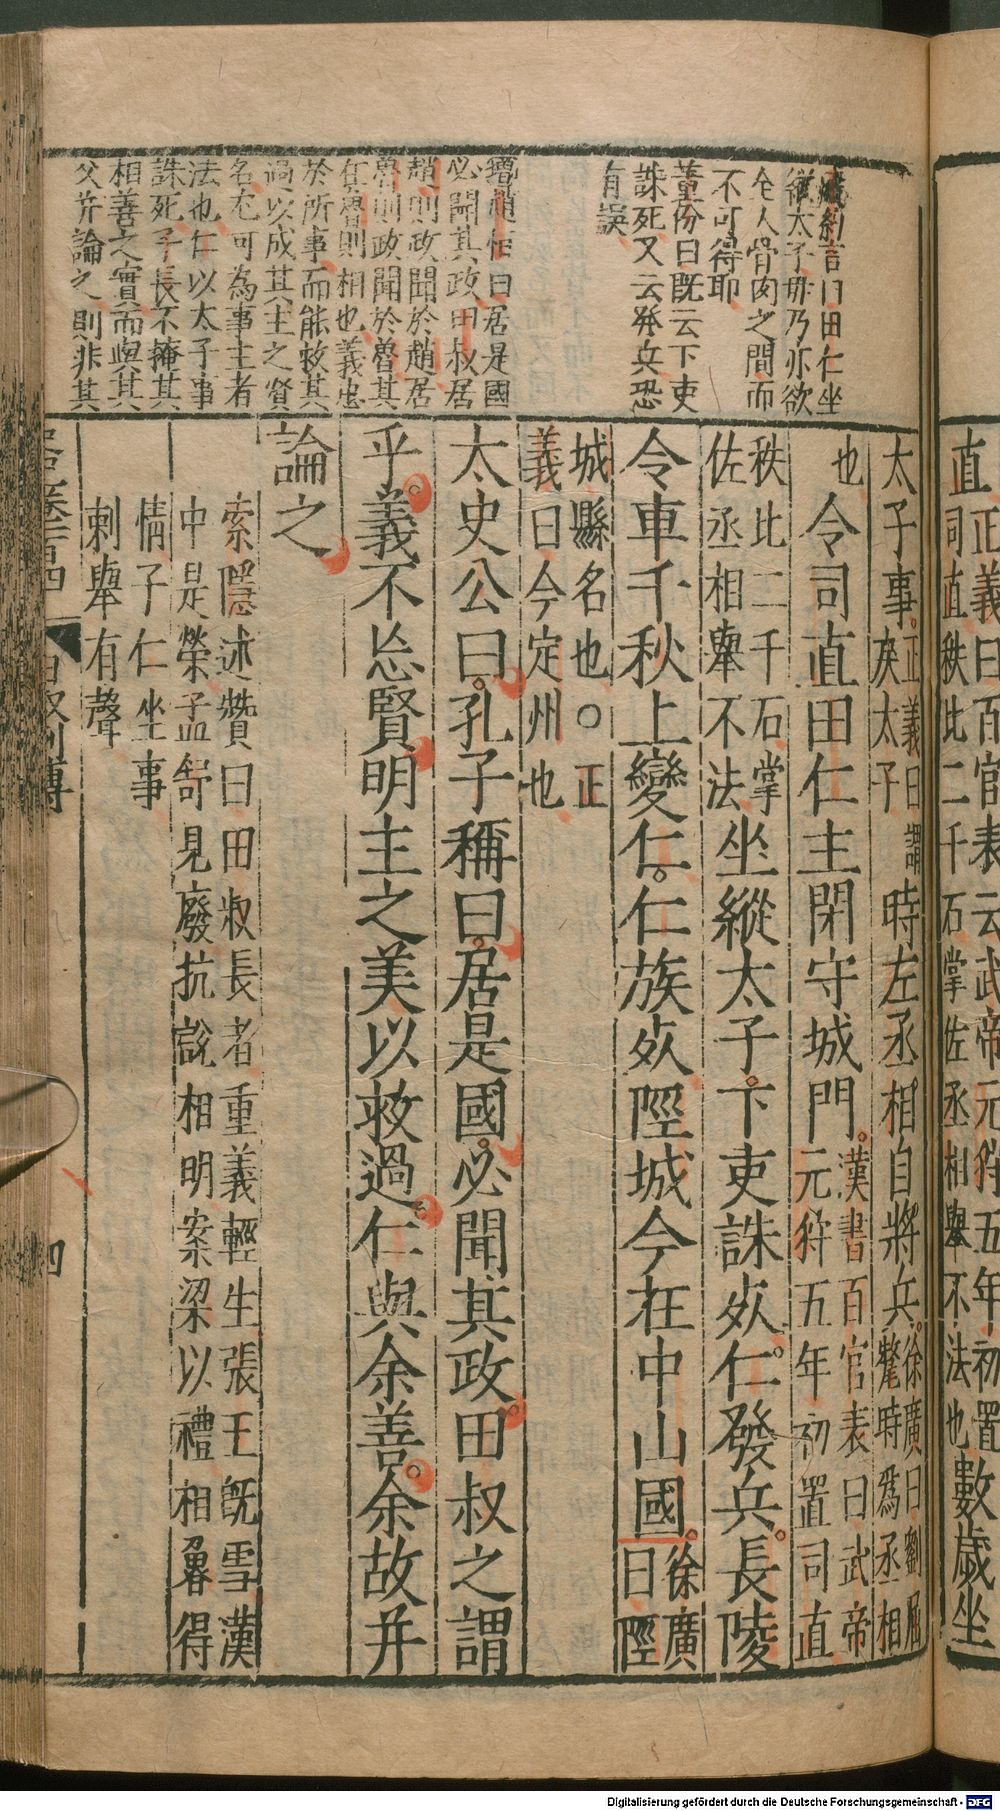 直正義曰百官表云武帝元狩五年初置
司直秩比二千石掌佐丞相舉不法也
數歲坐
言曰田仁坐
縱太子毋乃亦欲
全人骨肉之間而
不可得耶
董份曰既云下吏
誅死又云發兵恐
有誤
曰居是國
必聞其政田叔居
趙則政聞於趙居
魯則政聞於魯其
在魯則相也義忠
於所事而能救其
過以成其主之賢
名尤可為事主者
法也仁以太子事
誅死子長不掩其
相善之實而與其
父并論之則非其
太子事正義曰謂
戾太子
時左丞相自將兵徐廣曰劉屈
氂時為丞相
也
令司直田仁主閉守城門漢書百官表曰武帝
元狩五年初置司直
秩比二千石掌
佐丞相舉不法
坐縱太子下吏誅死仁發兵長陵
令車千秋上變仁仁族死陘城今在中山國徐廣
曰陘
城縣名也○正
義曰今定州也
太史公曰孔子稱曰居是國必聞其政田叔之謂
乎義不忘賢明主之美以救過仁與余善余故并
論之
索隱述贊曰田叔長者重義輕生張王既雪漢
中是榮孟舒見廢抗說相明案梁以禮相魯得
情子仁坐事
刺舉有聲
田叔列傳
四
Digitalisierung gefördert durch die Deutsche Forschungsgemeinschaft - DFG